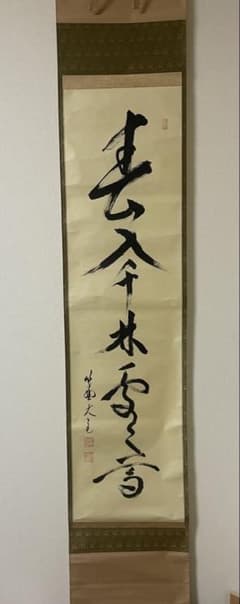 春入千林處々鶯